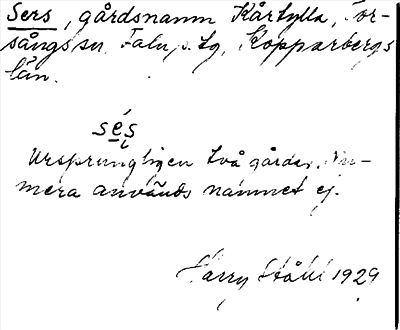 Sers, gårdsnamn Kårtylla, Tor-
sångs sn, Falu s. lg, Kopparbergs
län.
sẹs
Ursprungligen två gårdar. Nu-
mera används namnet ej.
Harry Ståhl 1929